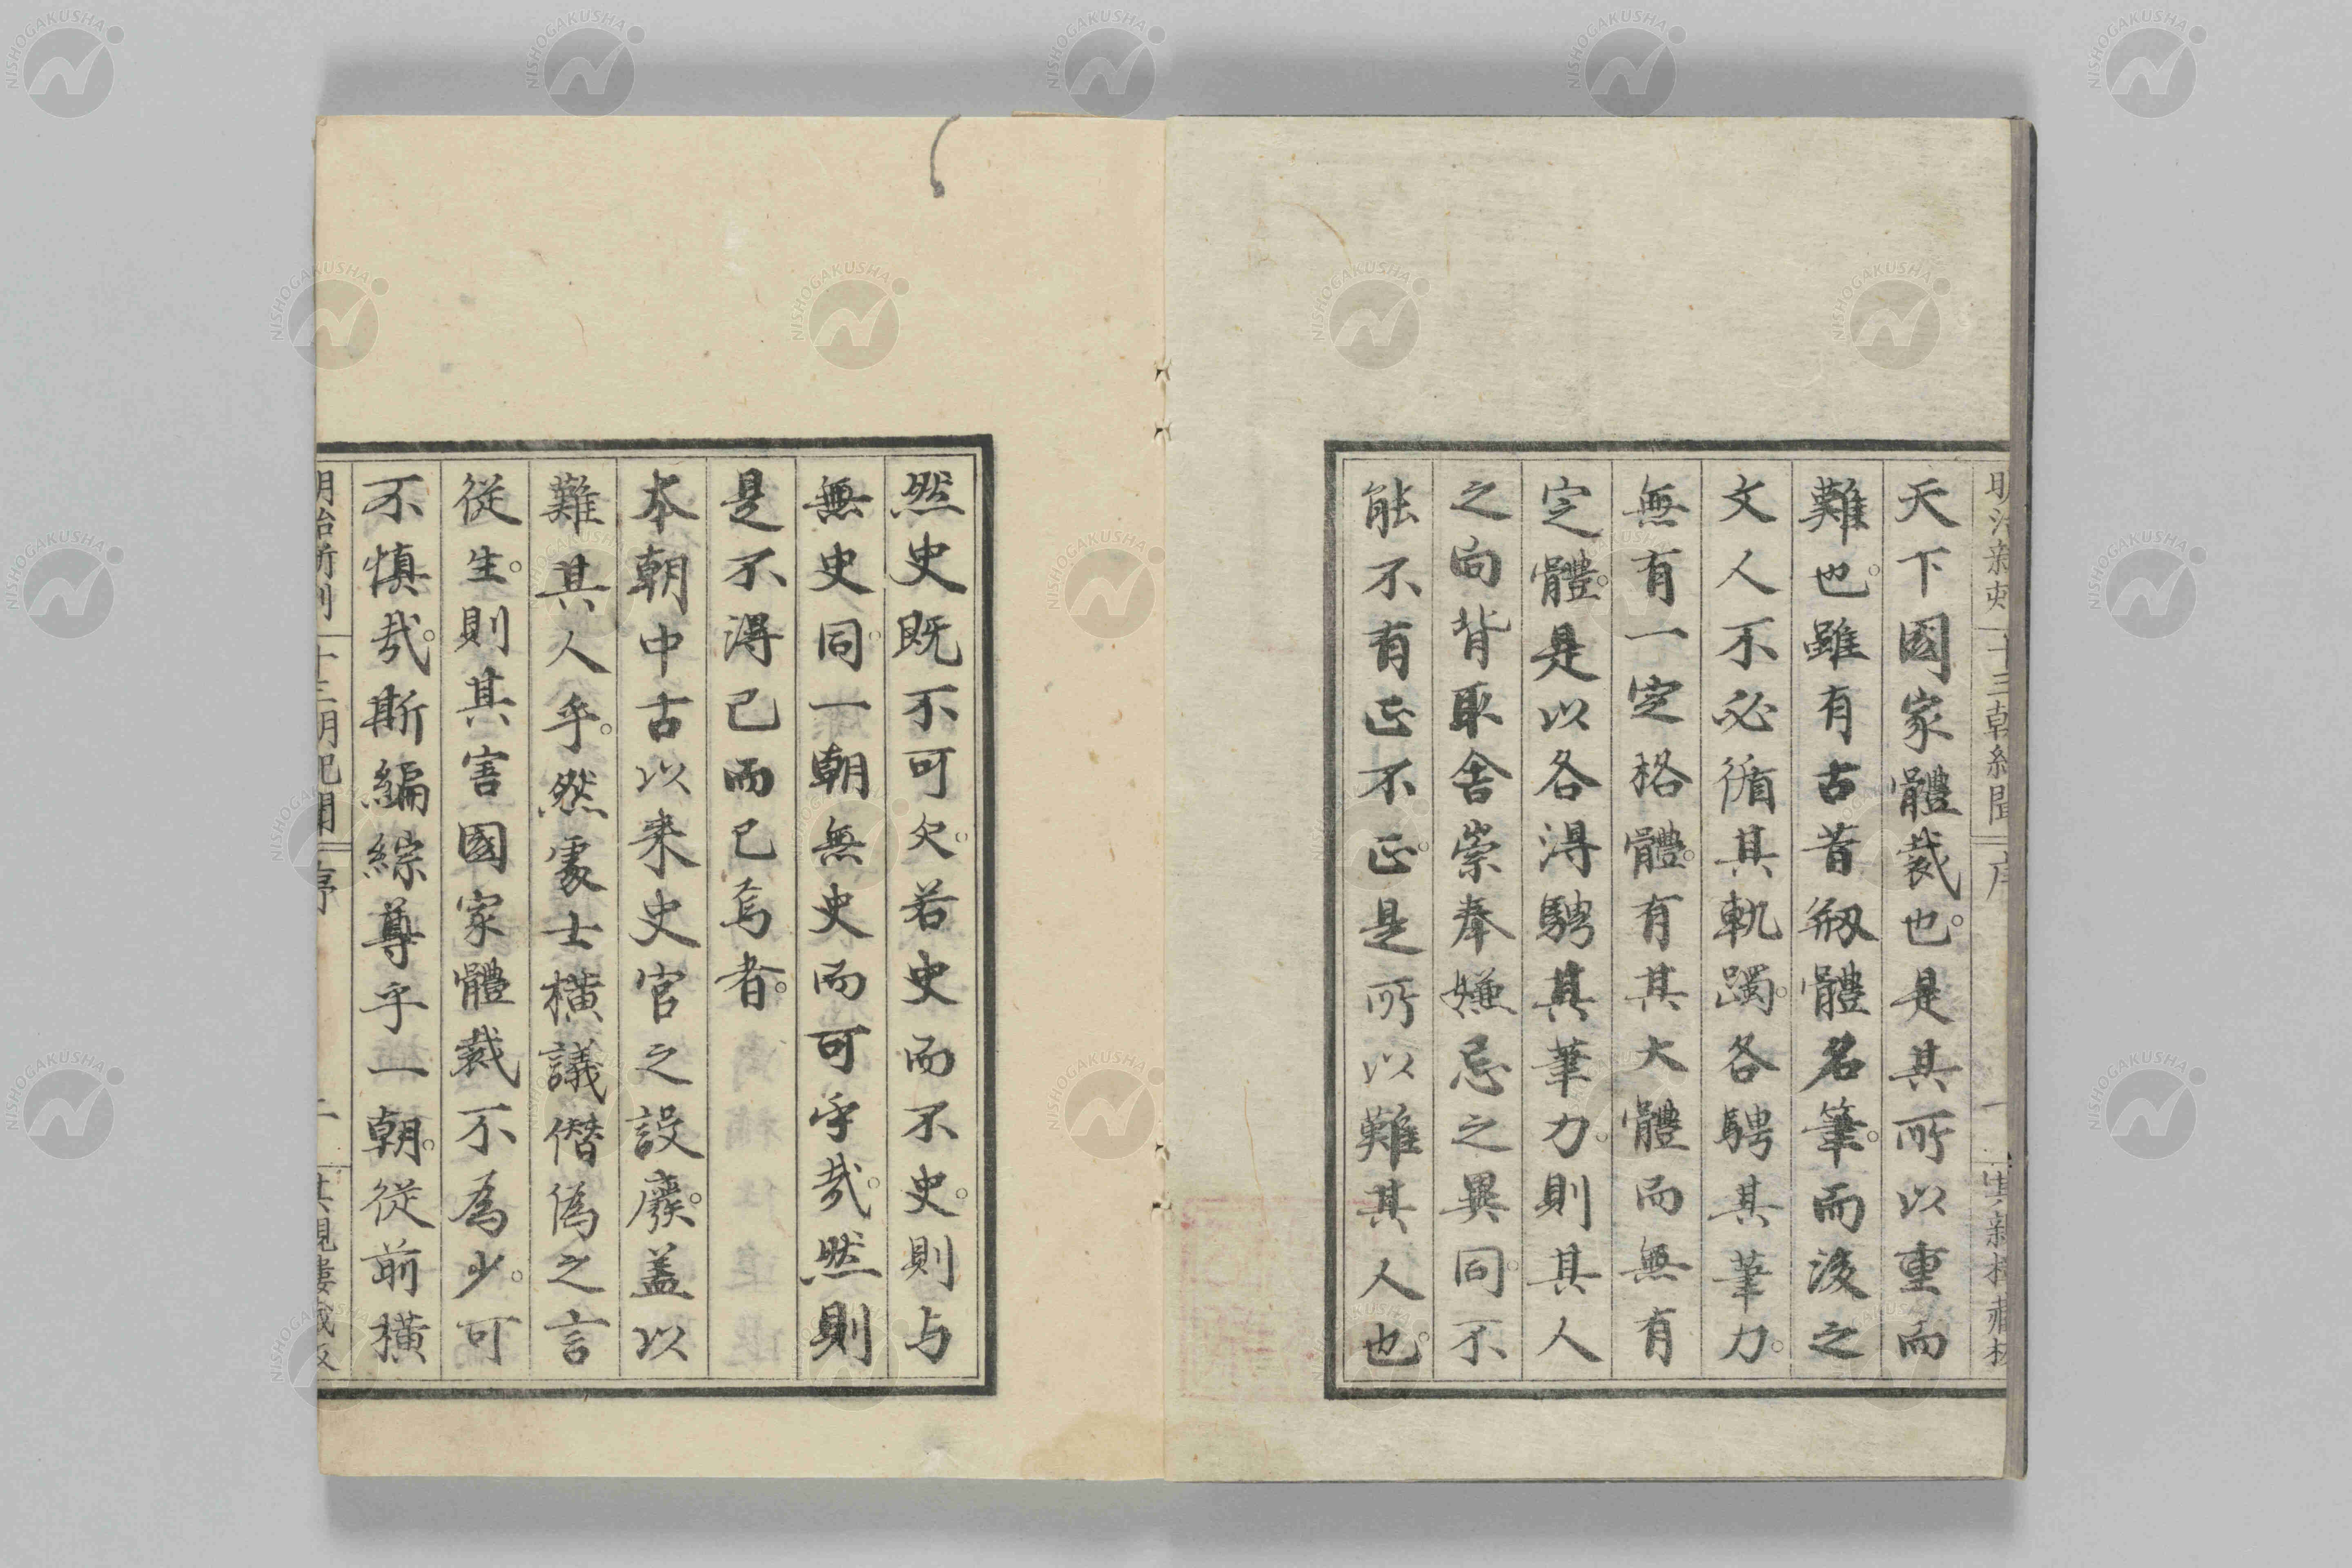 天下國家體裁也。是其所以重而
難也。雖有古昔剏體名筆。而後之
文人不必循其軌躅。各騁其筆力。
無有一定格體。有其大體而無有
定體。是以各得騁其筆力。則其人
之向背取舍崇奉嫌忌之異同。不
能不有正不正。是所以難其人也。
然史既不可欠。若史而不史。則与
無史同。一朝無史而可乎哉。然則
是不得已而已焉者。
本朝中古以来史官之設廢。盖以
難其人乎。然處士横議僭偽之言
從生。則其害國家體裁不為少。可
不慎哉。斯編綜尊乎一朝。從前横
明治新刻 十三朝紀聞 序
一
明治新刻 十三朝紀聞 序
二
NISHOGAKUSHA